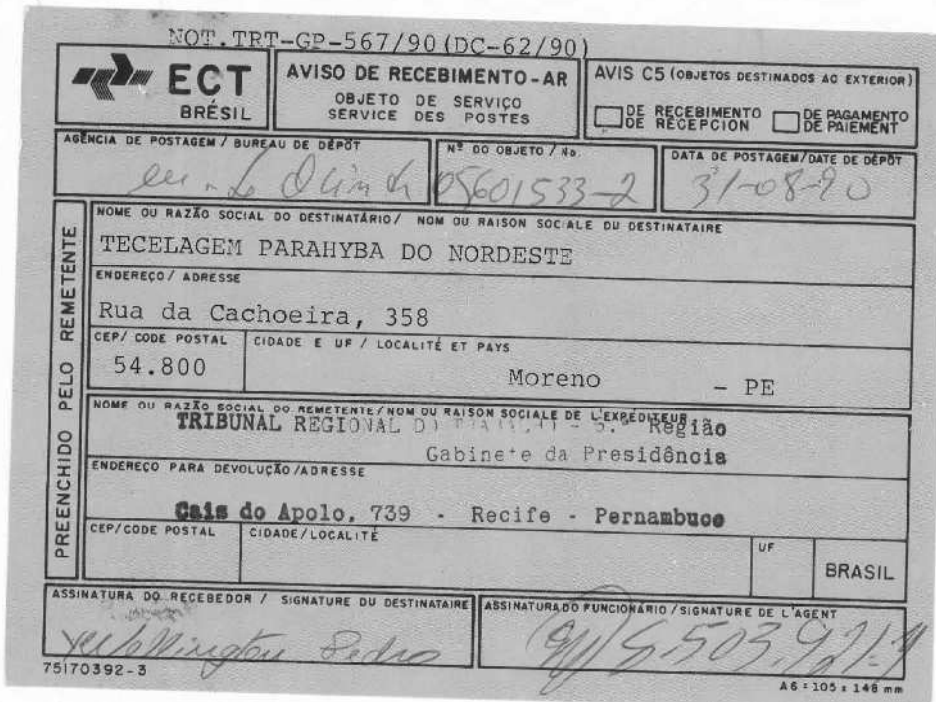 NOT.TRT-GP-567/90(DC-62/90)
ECT
BRÉSIL
AVISO DE RECEBIMENTO-AR
OBJETO DE SERVIÇO
SERVICE DES POSTES
AVIS C5 (OBJETOS DESTINADOS AO EXTERIOR)
DE RECEBIMENTO
DE RÉCEPCION
DE PAGAMENTO
DE PAIEMENT
AGÊNCIA DE POSTAGEM / BUREAU DE DÉPÔT
Nº DO OBJETO / No.
05601533-2
DATA DE POSTAGEM/DATE DE DÉPÔT
31-08-90
PREENCHIDO PELO REMETENTE
NOME OU RAZÃO SOCIAL DO DESTINATÁRIO / NOM OU RAISON SOCIALE DU DESTINATAIRE
TECELAGEM PARAHYBA DO NORDESTE
ENDEREÇO / ADRESSE
Rua da Cachoeira, 358
CEP/ CODE POSTAL
54.800
CIDADE E UF / LOCALITÉ ET PAYS
Moreno - PE
NOME OU RAZÃO SOCIAL DO REMETENTE/NOM OU RAISON SOCIALE DE L'EXPÉDITEUR
TRIBUNAL REGIONAL Região
Gabinete da Presidência
ENDEREÇO PARA DEVOLUÇÃO /ADRESSE
Cais do Apolo, 739 - Recife - Pernambuco
CEP/CODE POSTAL
CIDADE/LOCALITÉ
UF
BRASIL
ASSINATURA DO RECEBEDOR / SIGNATURE DU DESTINATAIRE
Wellington Pedro
ASSINATURA DO FUNCIONÁRIO / SIGNATURE DE L'AGENT
75170392-3
A6 = 105 x 148 mm